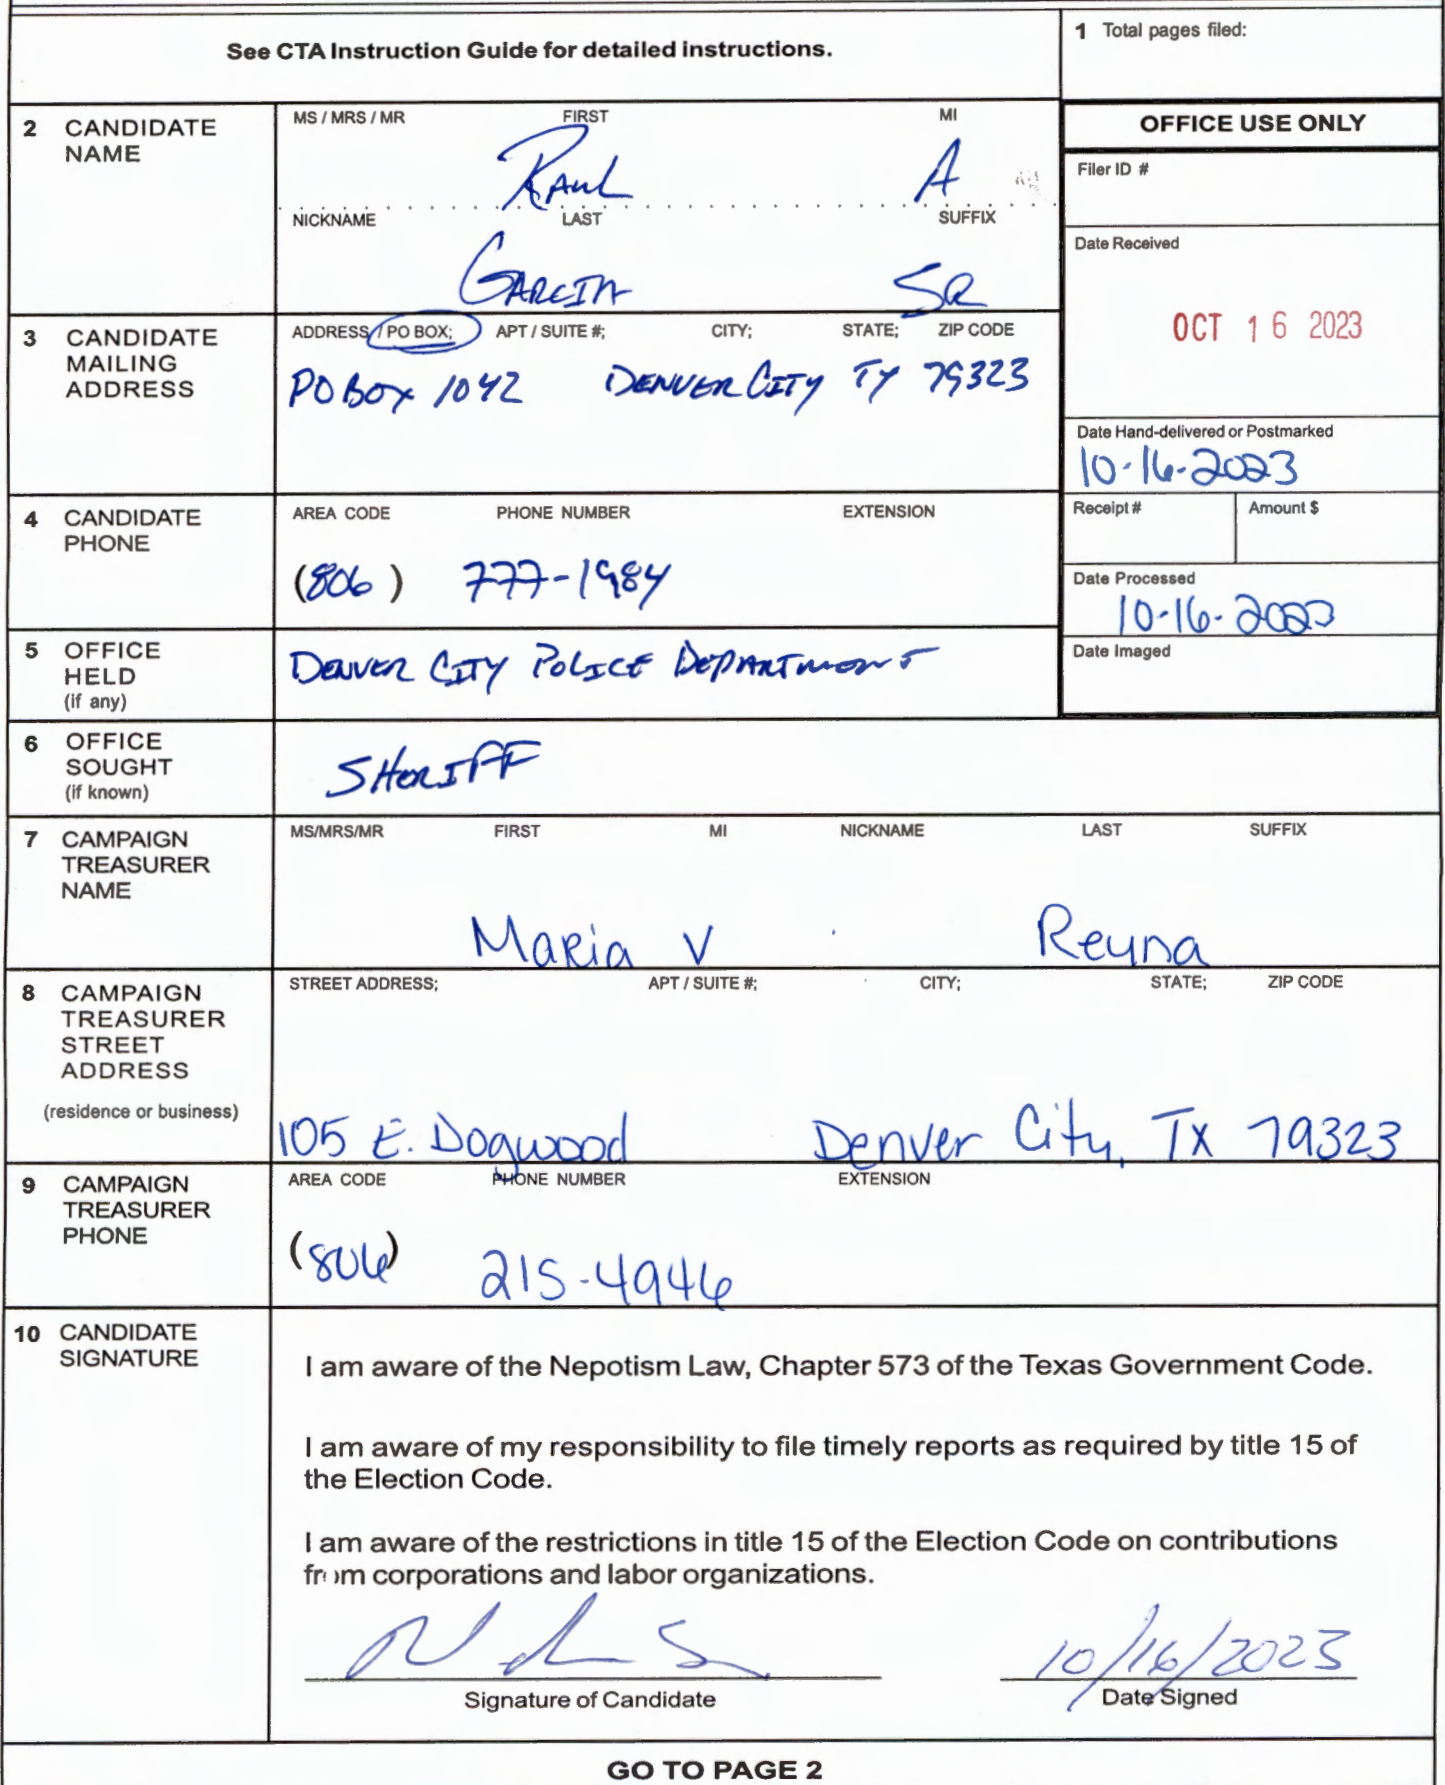 See CTA Instruction Guide for detailed instructions.
1 Total pages filed:
2 CANDIDATE NAME
MS / MRS / MR FIRST MI
Raul A
NICKNAME LAST SUFFIX
GARCIA SR
OFFICE USE ONLY
Filer ID #
Date Received
OCT 16 2023
3 CANDIDATE MAILING ADDRESS
ADDRESS / PO BOX; APT / SUITE #; CITY; STATE; ZIP CODE
PO BOX 1042 DENVER CITY TX 79323
Date Hand-delivered or Postmarked
10-16-2023
Receipt # Amount $
Date Processed
10-16-2023
Date Imaged
4 CANDIDATE PHONE
AREA CODE PHONE NUMBER EXTENSION
(806) 777-1984
5 OFFICE HELD (if any)
DENVER CITY POLICE DEPARTMENT
6 OFFICE SOUGHT (if known)
SHERIFF
7 CAMPAIGN TREASURER NAME
MS/MRS/MR FIRST MI NICKNAME LAST SUFFIX
Maria V Reyna
8 CAMPAIGN TREASURER STREET ADDRESS
(residence or business)
STREET ADDRESS; APT / SUITE #; CITY; STATE; ZIP CODE
105 E. Dogwood Denver City, Tx 79323
9 CAMPAIGN TREASURER PHONE
AREA CODE PHONE NUMBER EXTENSION
(806) 215-4946
10 CANDIDATE SIGNATURE
I am aware of the Nepotism Law, Chapter 573 of the Texas Government Code.
I am aware of my responsibility to file timely reports as required by title 15 of
the Election Code.
I am aware of the restrictions in title 15 of the Election Code on contributions
from corporations and labor organizations.
10/16/2023
Signature of Candidate Date Signed
GO TO PAGE 2